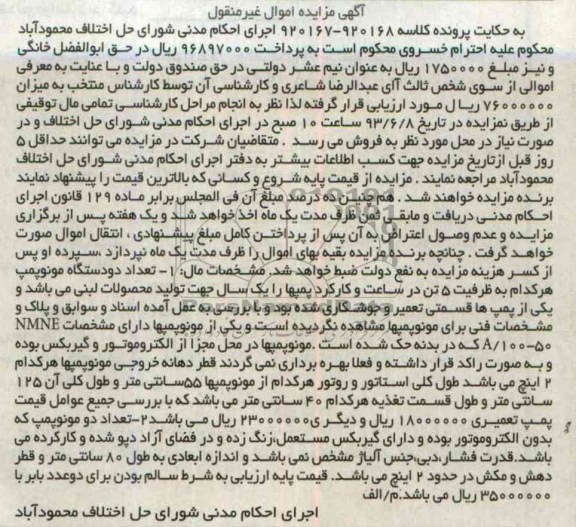 آگهی مزایده اموال غیرمنقول
به حکایت پرونده کلاسه ۹۲۰۱۶۸-۹۲۰۱۶۷ اجرای احکام مدنی شورای حل اختلاف محمودآباد
محکوم علیه احترام خسروی محکوم است به پرداخت ۹۶۸۹۷۰۰۰ ریال در حق ابوالفضل خانگی
و نیز مبلغ ۱۷۵۰۰۰۰ ریال به عنوان نیم عشر دولتی در حق صندوق دولت و با عنایت به معرفی
اموالی از سوی شخص ثالث آای عبدالرضا شاعری و کارشناسی آن توسط کارشناس منتخب به میزان
۷۶۰۰۰۰۰۰ ریال مورد ارزیابی قرار گرفته لذا نظر به انجام مراحل کارشناسی تمامی مال توقیفی
از طریق نمزایده در تاریخ ۹۳/۶/۸ ساعت ۱۰ صبح در اجرای احکام مدنی شورای حل اختلاف و در
صورت نیاز در محل مورد نظر به فروش می رسد . متقاضیان شرکت در مزایده می توانند حداقل ۵
روز قبل ازتاریخ مزایده جهت کسب اطلاعات بیشتر به دفتر اجرای احکام مدنی شورای حل اختلاف
محمودآباد مراجعه نمایند . مزایده از قیمت پایه شروع و کسانی که بالاترین قیمت را پیشنهاد نمایند
برنده مزایده خواهند شد . هم چنین ده درصد مبلغ آن فی المجلس برابر ماده ۱۲۹ قانون اجرای
احکام مدنی دریافت و مابقی فمن ظرف مدت یک ماه اخذ خواهد شد و یک هفته پس از برگزاری
مزایده و عدم وصول اعتراض به آن پس از پرداختن کامل مبلغ پیشنهادی ، انتقال اموال صورت
خواهد گرفت . چنانچه برنده مزایده بقیه بهای اموال را ظرف مدت یک ماه نپردازد ،سپرده او پس
از کسر هزینه مزایده به نفع دولت ضبط خواهد شد. مشخصات مال: ۱- تعداد دودستگاه مونوپمپ
هرکدام به ظرفیت ۵ تن در ساعت و کارکرد پمپها را یک سال جهت تولید محصولات لبنی می باشد و
یکی از پمپ ها قسمتی تعمیر و جوشکاری شده بود و با بررسی به عمل آمده اسناد و سوابق و پلاک و
مشخصات فنی برای مونوپمپها مشاهده نگردیده است و یکی از مونوپمپها دارای مشخصات NMNE
A/۱۰۰-۵۰ که در بدنه حک شده است .مونوپمپها در محل مجزا از الکتروموتور و گیربکس بوده
و به صورت راکد قرار داشته و فعلا بهره برداری نمی گردند قطر دهانه خروجی مونوپمپها هرکدام
۲ اینچ می باشد طول کلی استاتور و روتور هرکدام از مونوپمپها ۵۵سانتی متر و طول کلی آن ۱۲۵
سانتی متر و طول قسمت تغذیه هرکدام ۴۰ سانتی متر می باشد که با بررسی جمیع عوامل قیمت
پمپ تعمیری ۱۸۰۰۰۰۰۰ ریال و دیگری ۲۳۰۰۰۰۰۰ ریال می باشد ۲-تعداد دو مونوپمپ که
بدون الکتروموتور بوده و دارای گیربکس مستعمل،زنگ زده و در فضای آزاد دپو شده و کارکرده می
باشد.قدرت فشار،دبی،جنس آلیاژ مشخص نمی باشد و اندازه ابعادی به طول ۸۰ سانتی متر و قطر
دهش و مکش در حدود ۲ اینچ می باشد. قیمت پایه ارزیابی به شرط سالم بودن برای دوعدد بابر با
۳۵۰۰۰۰۰۰ ریال می باشد.م/الف
اجرای احکام مدنی شورای حل اختلاف محمودآباد